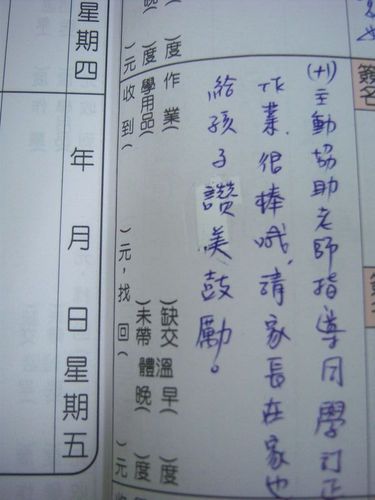 (+1)主動協助老師指導同學訂正
作業,很棒哦,請家長在家也
給孩子讚美鼓勵。
簽名
作業(
)缺交
學用品(
)未帶
溫
早(
)度
體
晚(
)度
收到(
)元,找回(
)元
晚(
)度
)度
)元
星期四
年 月 日 星期五